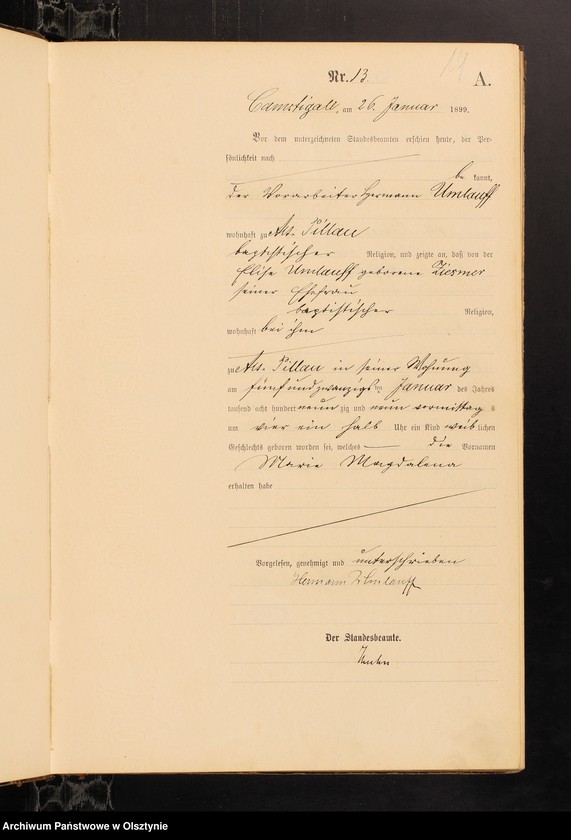 14
Nr. 13.
A.
Camstigall, am 26. Januar 1899.
Vor dem unterzeichneten Standesbeamten erschien heute, der Per-
sönlichkeit nach
be kannt,
der Vorarbeiter Hermann Umlauff
wohnhaft zu Alt-Pillau
baptistischer Religion, und zeigte an, daß von der
Elise Umlauff geborene Ziesmer
seiner Ehefrau
baptistischer Religion,
wohnhaft bei ihm
zu Alt-Pillau in seiner Wohnung
am fünfundzwanzigsten Januar des Jahres
tausend acht hundert neun zig und neun vormittags
um vier ein halb Uhr ein Kind weiblichen
Geschlechts geboren worden sei, welches die Vornamen
Marie Magdalena
erhalten habe
Vorgelesen, genehmigt und unterschrieben
Hermann Umlauff
Der Standesbeamte.
Archiwum Państwowe w Olsztynie